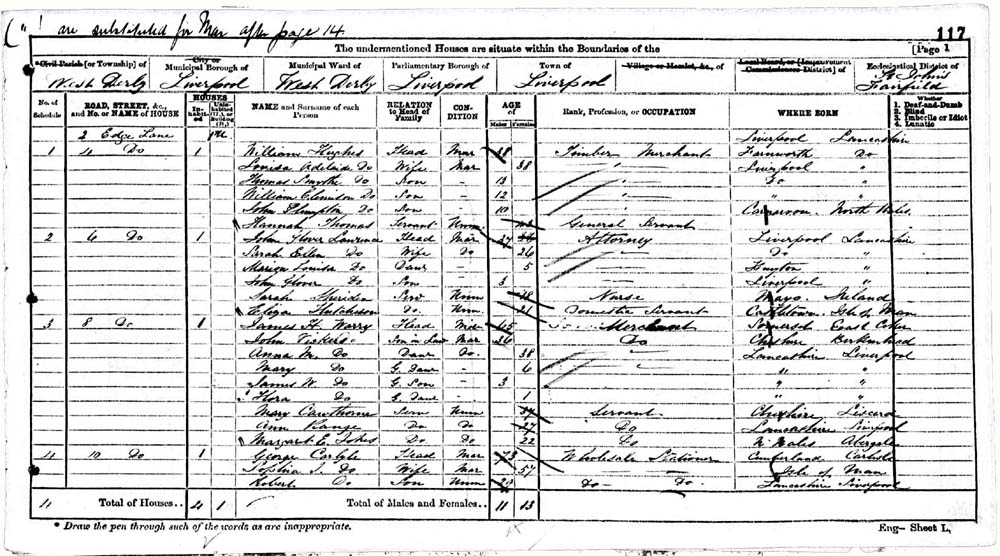 (" ! are substituted for Mar after page 14
117
The undermentioned Houses are situate within the Boundaries of the [Page 1
Civil Parish [or Township] of City or Municipal Borough of Municipal Ward of Parliamentary Borough of Town of Village or Hamlet, &c., of Local Board, or [Improvement Commissioners District] of Ecclesiastical District of
West Derby Liverpool West Derby Liverpool Liverpool St John's Fairfield
No. of Schedule ROAD, STREET, &c., and No. or NAME of HOUSE HOUSES Inhabited Uninhabited (U.), or Building (B.) NAME and Surname of each Person RELATION to Head of Family CONDITION AGE of Males Females Rank, Profession, or OCCUPATION WHERE BORN Whether 1. Deaf-and-Dumb 2. Blind 3. Imbecile or Idiot 4. Lunatic
2 Edge Lane Liverpool Lancashire
1 4 Do 1 William Hughes Head Mar 48 Timber Merchant Farnworth Do
Louisa Adelaide Do Wife Mar 38 Liverpool "
Thomas Smythe Do Son - 13 Do "
William Do Son - 12 " "
John Plumpton Do Son - 10
Hannah Thomas Servant Unm General Servant Carnarvon. North Wales.
2 6 Do 1 John Glover Lawrence Head Mar 27 Attorney Liverpool Lancashire
Sarah Ellen Do Wife Do 26 Do "
Louisa Do Daur - 5 Huyton "
John Glover Do Son - 3 Liverpool "
Sarah Sheriden Serv Unm 18 Nurse Mayo Ireland
Eliza Hutchison Do. Unm. 21 Domestic Servant Castletown. Isle of Man
3 8 Do 1 James H. Head Wid 65 Merchant
John Do Son in Law Mar 36 Do Cheshire Birkenhead
Anna M. Do Daur Do. 38 Lancashire Liverpool
Mary Do G. Daur - 6 " "
James W. Do G. Son - 3 " "
Flora Do G. Daur - 1 " "
Mary Cawthorne Serv Unm Servant Cheshire Liscard
Ann Do Do 27 Do Lancashire Liverpool
Margaret E. Do Do 22 Do N Wales Abergele
4 10 Do 1 George Carlyle Head Mar 73 Wholesale Stationer Cumberland Carlisle
Sophia J. Do Wife Mar 57 Isle of Man
Robert Do Son Unm 29 Do Do. Lancashire Liverpool
4 Total of Houses.. 4 1 Total of Males and Females.. 11 13
* Draw the pen through such of the words as are inappropriate. Eng- Sheet L.